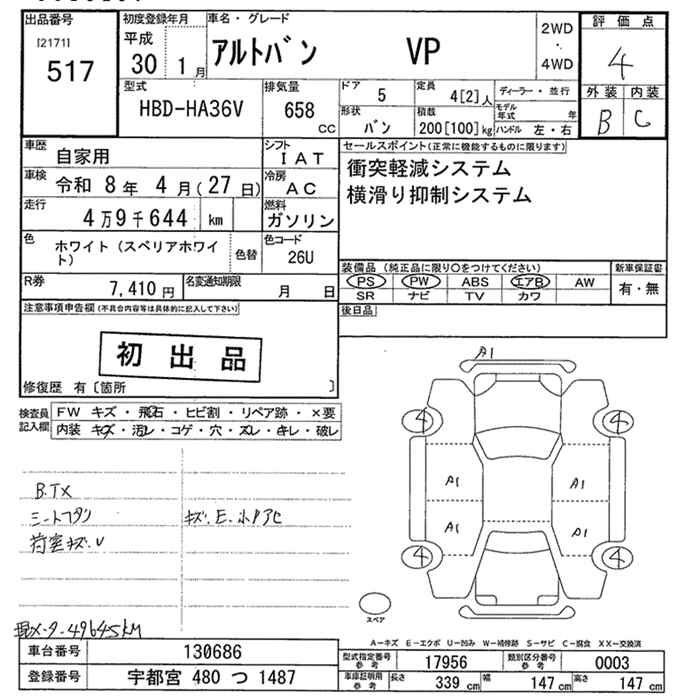 出品番号
[2171]
517
初度登録年月
平成
30 1月
車名・グレード
アルトバン VP
2WD
・
4WD
評価点
4
外装 内装
B C
型式
HBD-HA36V
排気量
658
cc
ドア
5
定員
4[2]人
形状
バン
積載
200[100]kg
ディーラー・並行
モデル年式 年
ハンドル 左・右
車歴
自家用
シフト
IAT
車検
令和 8年 4月(27日)
冷房
AC
走行
4万9千644 km
燃料
ガソリン
色
ホワイト(スペリアホワイト)
色替
色コード
26U
R券
7,410円
名変通知期限
月 日
セールスポイント(正常に機能するものに限ります)
衝突軽減システム
横滑り抑制システム
装備品(純正品に限り○をつけてください)
PS PW ABS エアB AW
SR ナビ TV カワ
新車保証書
有・無
後日品
注意事項申告欄(不具合内容等は具体的に記入して下さい)
初出品
修復歴 有〔箇所 〕
検査員記入欄
FW キズ・飛石・ヒビ割・リペア跡・×要
内装 キズ・汚レ・コゲ・穴・ズレ・キレ・破レ
B.TX
シートフタン
キズ.E.ホアヒ
荷室キズ.U
メータ-49645km
A1
4 4
A1 A1
A1 A1
4 4
スペア
A-キズ E-エクボ U-凹み W-補修跡 S-サビ C-腐食 XX-交換済
車台番号
130686
登録番号
宇都宮 480 つ 1487
型式指定番号
参考
17956
類別区分番号
参考
0003
車庫証明用
参考
長さ
339 cm
幅
147 cm
高さ
147 cm